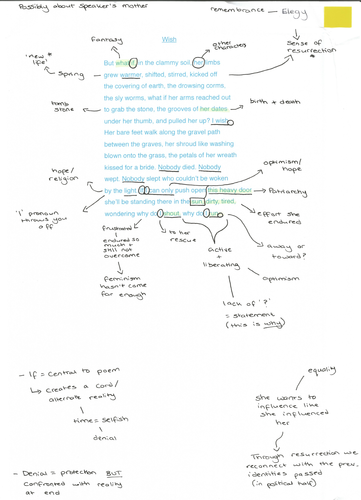 Possibly about speaker's mother
remembrance → Elegy
Fantasy
Wish
other
characters
sense of
resurrection *
"new *
life"
Spring
But what if in the clammy soil her limbs
grew warmer, shifted, stirred, kicked off
the covering of earth, the drowsing corms,
the sly worms, what if her arms reached out
to grab the stone, the grooves of her dates
under her thumb, and pulled her up? I wish.
Her bare feet walk along the gravel path
between the graves, her shroud like washing
blown onto the grass, the petals of her wreath
kissed for a bride. Nobody died. Nobody
wept. Nobody slept who couldn't be woken
by the light. If I can only push open this heavy door
she'll be standing there in the sun, dirty, tired,
wondering why do I shout, why do I run.
tomb
stone
birth + death
hope/
religion
optimism/
hope
Patriarchy
'I' pronoun
throws you
off
effort she
endured
frustrated
endured so
much +
still not
overcome
feminism
hasn't come
far enough
to her
rescue
active
+
liberating
away or
toward?
optimism
lack of '?'
= statement
(this is why)
- If = central to poem
↳ creates a
alternate reality
time = selfish
denial
equality
she wants to
influence like
she influenced
her
Through resurrection we
reconnect with the prev.
identities passed
(in political half)
- Denial = protection BUT
confronted with reality
at end